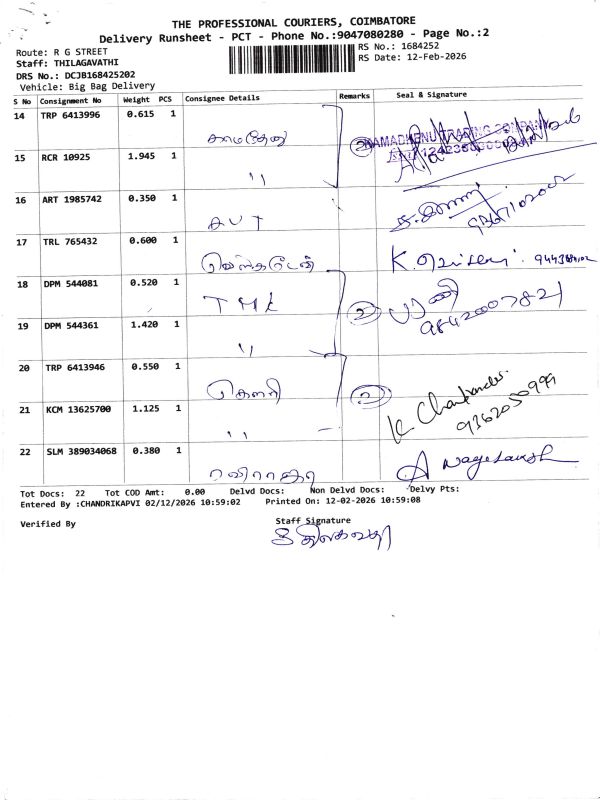 THE PROFESSIONAL COURIERS, COIMBATORE
Delivery Runsheet - PCT - Phone No.:9047080280 - Page No.:2
Route: R G STREET
RS No.: 1684252
Staff: THILAGAVATHI
RS Date: 12-Feb-2026
DRS No.: DCJB168425202
Vehicle: Big Bag Delivery
S No Consignment No Weight PCS Consignee Details Remarks Seal & Signature
14 TRP 6413996 0.615 1 காமதேனு 2 KAMADHENU TRADING COMPANY
15 RCR 10925 1.945 1 "
16 ART 1985742 0.350 1 AVT
17 TRL 765432 0.600 1
18 DPM 544081 0.520 1 TMC 2 பழனி
9842007821
19 DPM 544361 1.420 1 "
20 TRP 6413946 0.550 1 கௌரி 2
21 KCM 13625700 1.125 1 " K Chandender
9362050999
22 SLM 389034068 0.380 1 A Nageswaran
Tot Docs: 22 Tot COD Amt: 0.00 Delvd Docs: Non Delvd Docs: Delvy Pts:
Entered By :CHANDRIKAPVI 02/12/2026 10:59:02 Printed On: 12-02-2026 10:59:08
Verified By Staff Signature
S திலகவதி